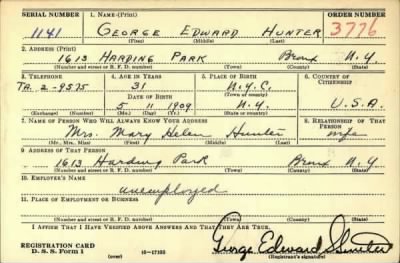 SERIAL NUMBER 1. NAME (Print) ORDER NUMBER
1141 GEORGE EDWARD HUNTER 3776
(First) (Middle) (Last)
2. ADDRESS (Print)
1613 HARDING PARK Bronx N.Y.
(Number and street or R. F. D. number) (Town) (County) (State)
3. TELEPHONE 4. AGE IN YEARS 5. PLACE OF BIRTH 6. COUNTRY OF CITIZENSHIP
TA. 2-9575 31 N.Y.C.
DATE OF BIRTH (Town or county)
5 11 1909 N.Y. U.S.A.
(Exchange) (Number) (Mo.) (Day) (Yr.) (State or country)
7. NAME OF PERSON WHO WILL ALWAYS KNOW YOUR ADDRESS 8. RELATIONSHIP OF THAT PERSON
Mrs. Mary Helen Hunter wife
(Mr., Mrs., Miss) (First) (Middle) (Last)
9. ADDRESS OF THAT PERSON
1613 Harding Park Bronx N.Y
(Number and street or R. F. D. number) (Town) (County) (State)
10. EMPLOYER'S NAME
unemployed
11. PLACE OF EMPLOYMENT OR BUSINESS
(Number and street or R. F. D. number) (Town) (County) (State)
I AFFIRM THAT I HAVE VERIFIED ABOVE ANSWERS AND THAT THEY ARE TRUE.
REGISTRATION CARD George Edward Hunter
D. S. S. Form 1 (over) 16-17105 (Registrant's signature)